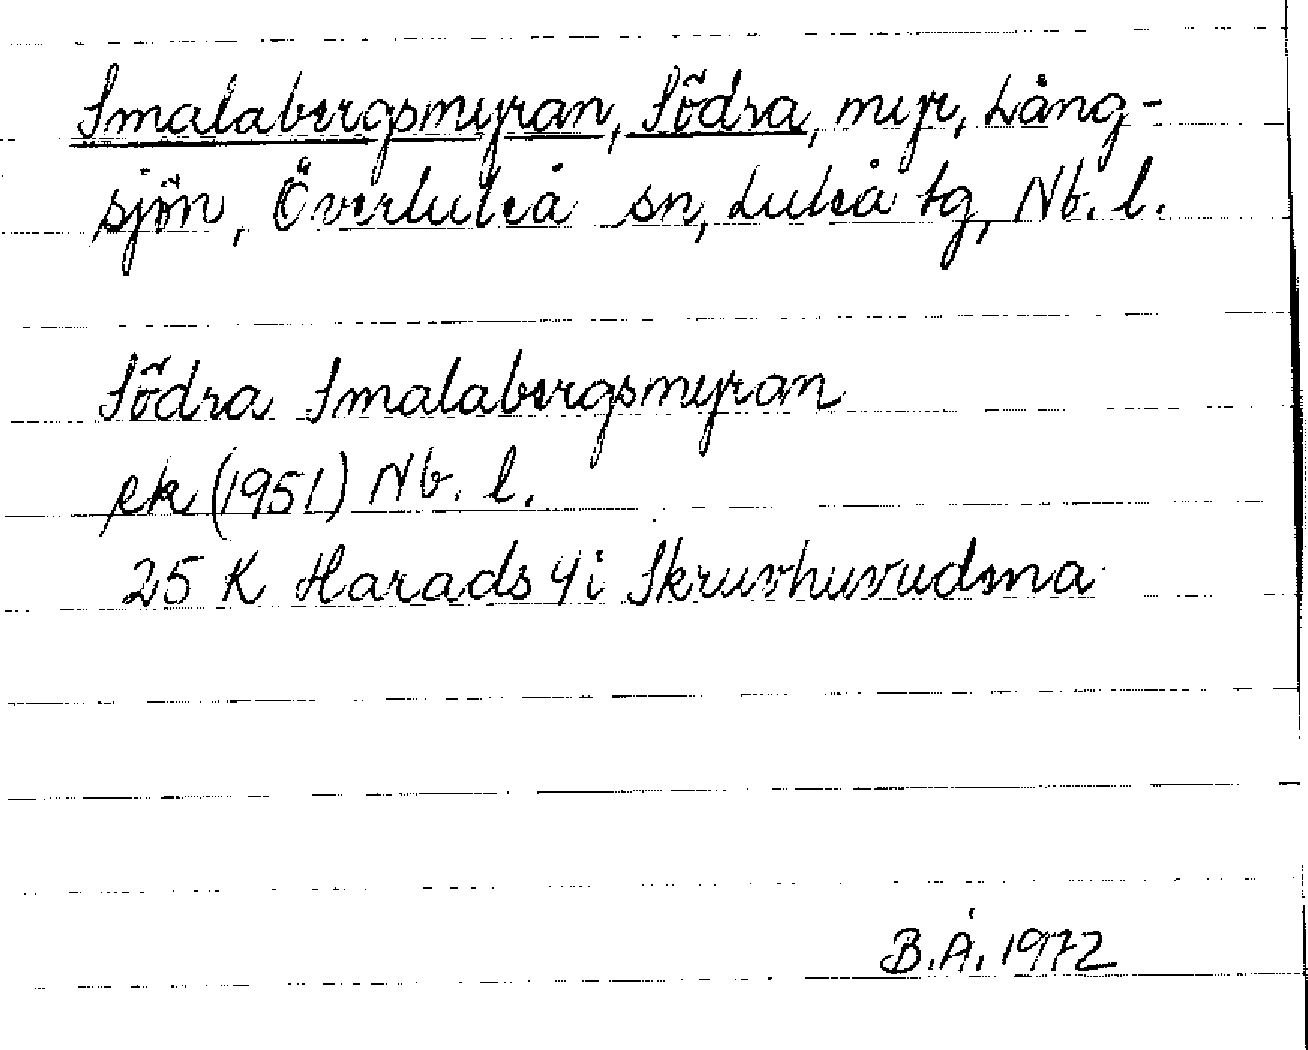 Smalabergsmyran, Södra, myr, Lång-
sjön, Överluleå sn, Luleå tg, Nb. l.
Södra Smalabergsmyran
ek (1951) Nb. l.
25 K Harads 4i Skruvhuvudena
B.Å. 1972